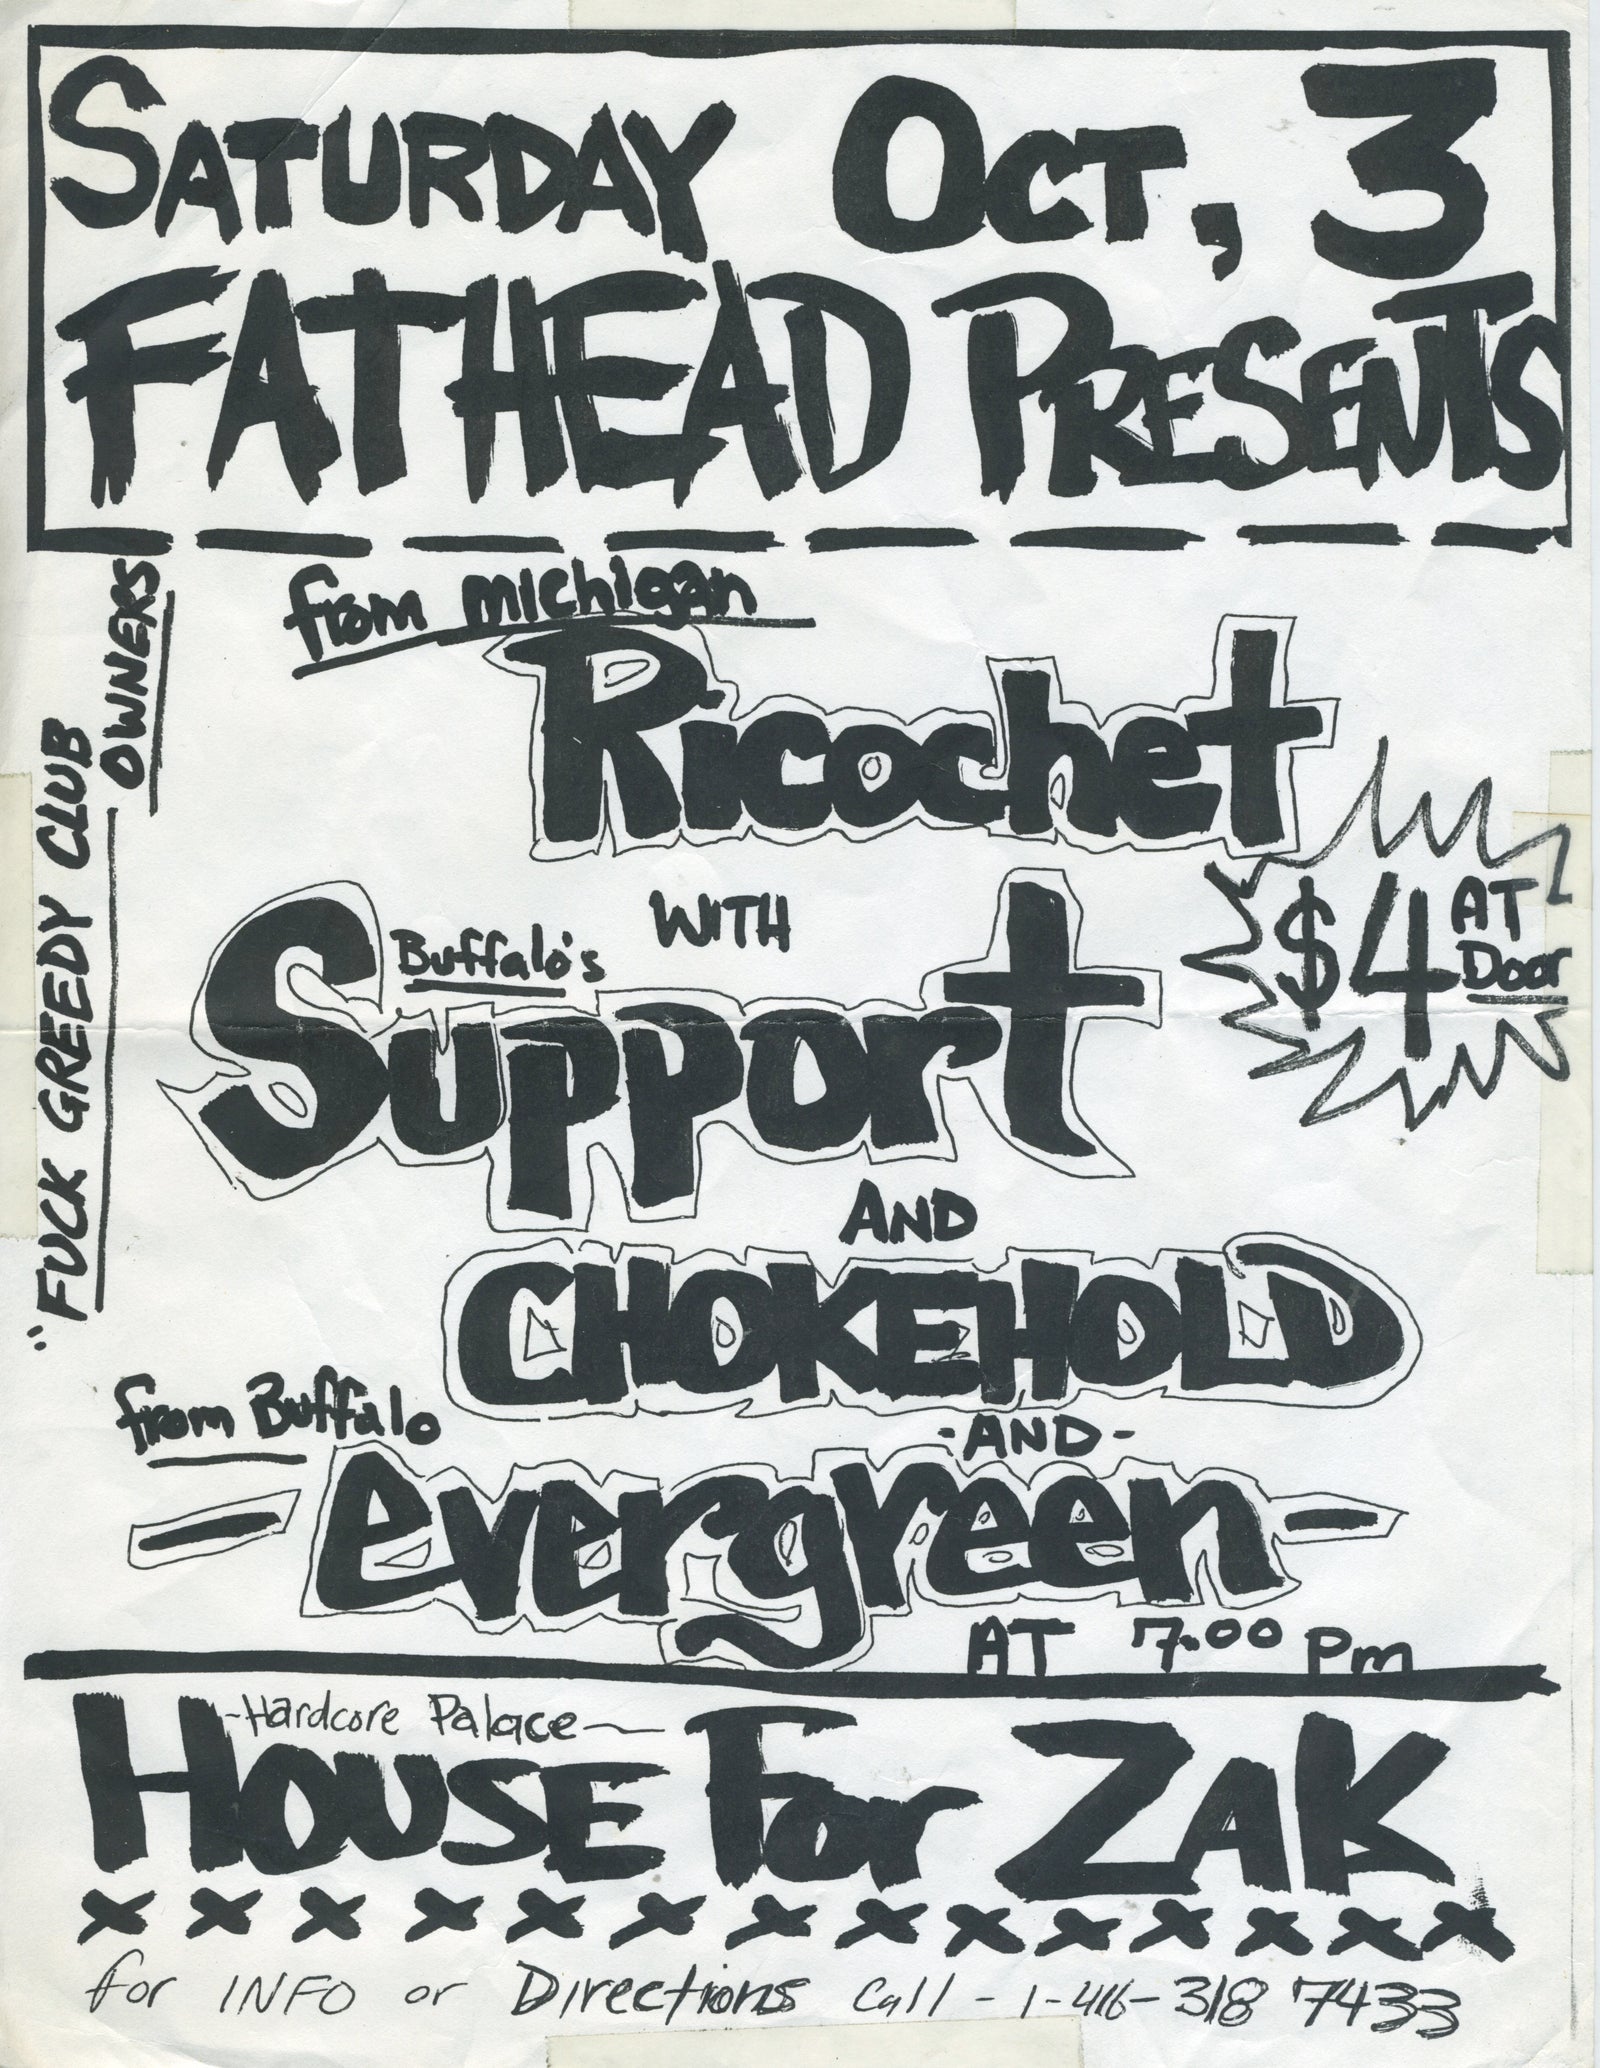 SATURDAY OCT, 3
FATHEAD PRESENTS
"FUCK GREEDY CLUB
OWNERS
from michigan
Ricochet
WITH
Buffalo's
Support
$4 AT
Door
AND
CHOKEHOLD
from Buffalo
-AND-
- evergreen -
AT 7:00 pm
-Hardcore Palace-
HOUSE For ZAK
x x x x x x x x x x x x x x
for INFO or Directions Call - 1-416-318 7433